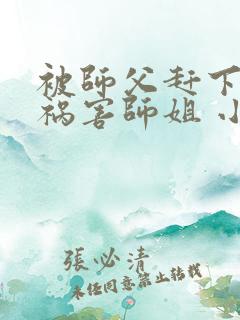 被師父赶下
祸害師姐 小
張必清
未经同意禁止转载